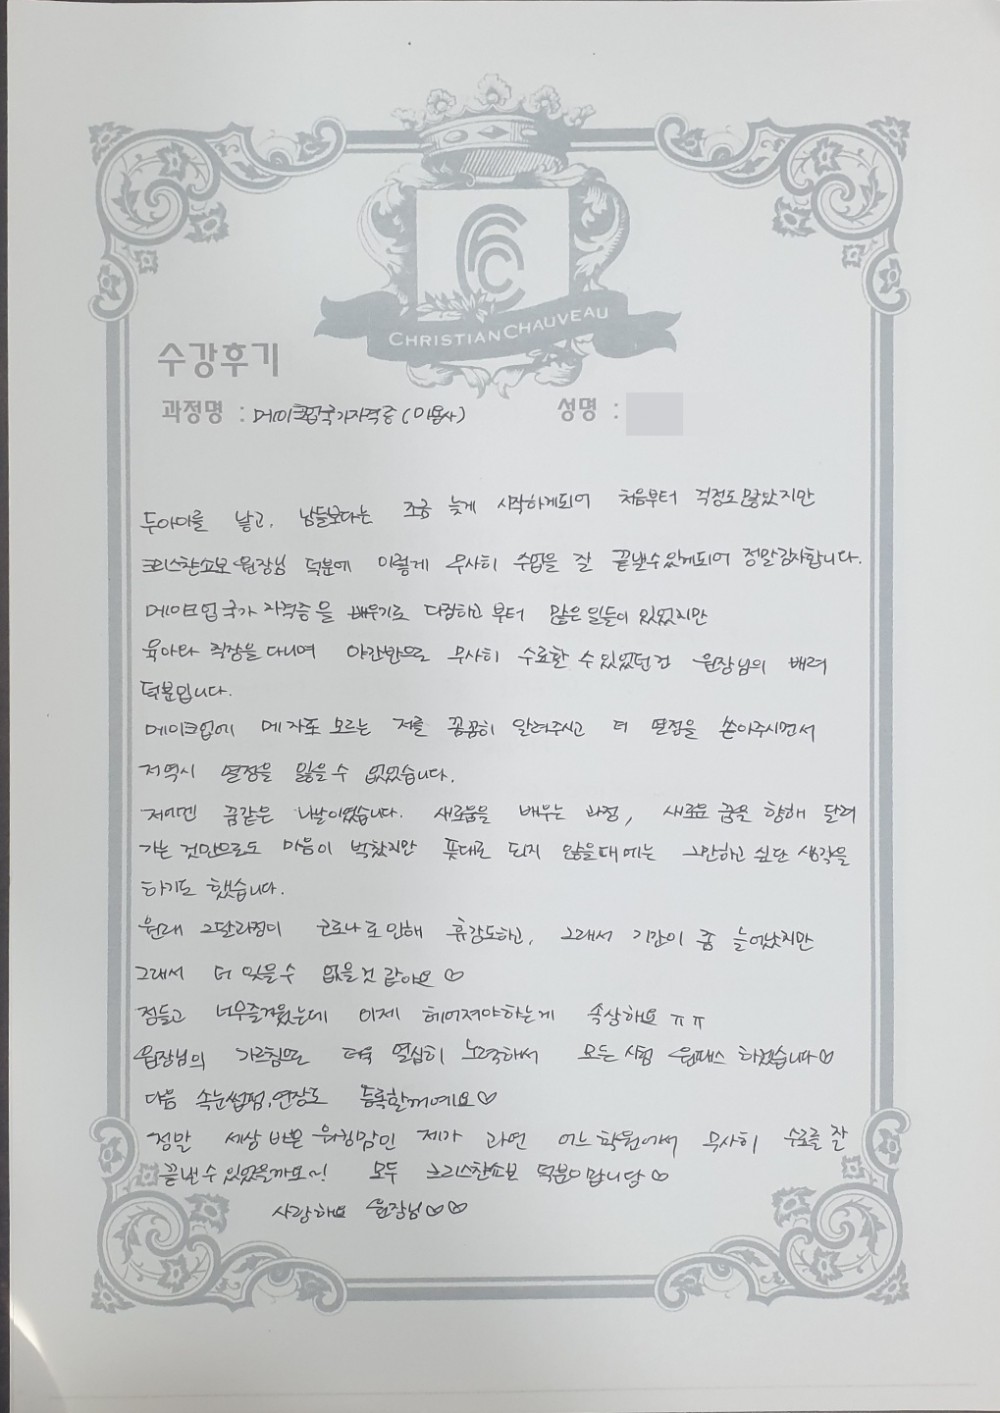 CHRISTIAN CHAUVEAU
수강후기
과정명 : 메이크업국가자격증(미용사) 성명 :
두아이를 낳고, 남들보다는 조금 늦게 시작하게되어 처음부터 걱정도많았지만
크리스챤쇼보 원장님 덕분에 이렇게 무사히 수업을 잘 끝낼수있게되어 정말감사합니다.
메이크업국가 자격증을 배우기로 다짐하고 부터 많은일들이 있었지만
육아와 직장을 다니며 야간반으로 무사히 수료할 수 있었던건 원장님의 배려
덕분입니다.
메이크업에 메 자도 모르는 저를 꼼꼼히 알려주시고 더 열정을 쏟아주시면서
저역시 열정을 잃을 수 없었습니다.
저에겐 꿈같은 나날이였습니다. 새로움을 배우는 과정, 새로운 꿈을 향해 달려
가는 것만으로도 마음이 벅찼지만 뜻대로 되지 않을때에는 그만하고 싶단 생각을
하기도 했습니다.
원래 3달과정이 코로나로 인해 휴강도하고, 그래서 기간이 좀 늘어났지만
그래서 더 잊을수 없을것 같아요♡
정들고 너무즐거웠는데 이제 헤어져야하는게 속상해요 ㅠㅠ
원장님의 가르침으로 더욱 열심히 노력해서 모든시험 원패스 하겠습니다♡
다음 속눈썹펌,연장도 등록할꺼예요♡
정말 세상 바쁜 워킹맘인 제가 과연 어느학원에서 무사히 수료를 잘
끝낼 수 있었을까요~! 모두 크리스챤쇼보 덕분이랍니당♡
사랑해요 원장님♡♡